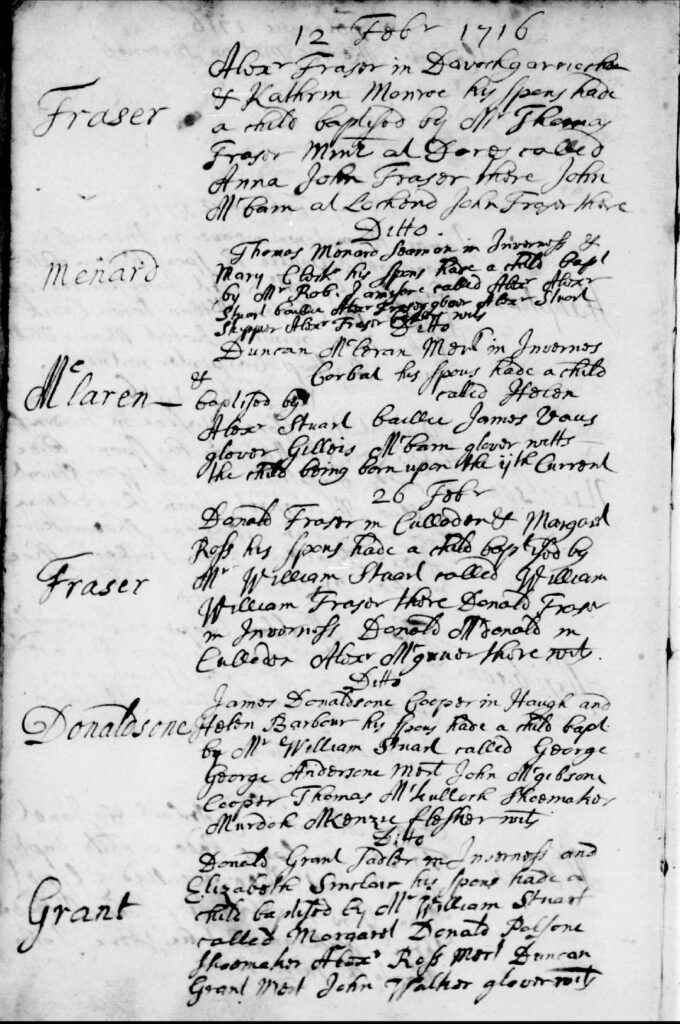 12 Febr 1716
Fraser
Alexr Fraser in
& Kathrin Monroe his spous hade
a child baptised by Mr Thomas
Fraser Minr at Dores called
Anna John Fraser there John
Mcbain at Lochend John Fraser there
Ditto.
Menard
Thomas Menard Seaman in Inverness &
Mary Clerk his spous hade a child bapt
by Mr Robt Jamisone called Alexr Alexr
Stuart baillie Alexr Fraser glover Alexr Stuart
Skipper Alexr Fraser wits
Ditto
Mcclaren
Duncan Mccleran Mert in Invernes
& Corbat his spous hade a child
baptised by called Helen
Alexr Stuart baillie James Vaus
glover Gilleis Mcbain glover witts
the child being born upon the 11th Current
26 Febr
Fraser
Donald Fraser in Culloden & Margart
Ross his spous hade a child baptised by
Mr William Stuart called William
William Fraser there Donald Fraser
in Inverness Donald McDonald in
Culloden Alexr there wits.
Ditto
Donaldsone
James Donaldsone Cooper in Haugh and
Helen Barbour his spous hade a child bapt
by Mr William Stuart called George
George Andersone Mert John Mcgibsone
Cooper Thomas Mckulloch Shoemaker
Murdoh Mkenzie flesher wits
Ditto
Grant
Donald Grant Sadler in Inverness and
Elizabeth Sinclair his spous hade a
child baptised by Mr William Stuart
called Margaret Donald Polsone
Shoemaker Alexr Ross Mert Duncan
Grant Mert John Walker glover wits